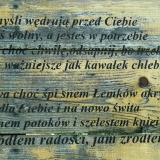 myśli wędrują przed Ciebie
ś wolny, a jesteś w potrzebie
choć chwilę, odsapnij, bo
ważniejsze jak kawałek chleb
choć śpi snem Łemków okry
dla Ciebie i na nowo świta
mem potoków i szelestem kniej
ódłem radości, jam źródłem